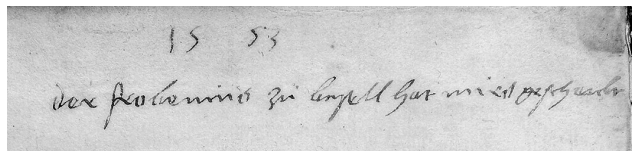 15 53
Der frobenius zu basell hat mirs geschenckt